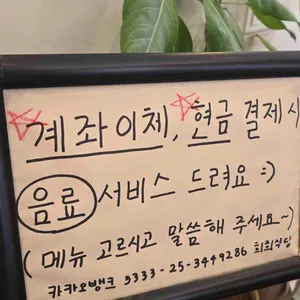 계좌이체, 현금 결제 시
음료 서비스 드려요 :)
( 메뉴 고르시고 말씀해 주세요~)
카카오뱅크 3333-25-3449286 최희